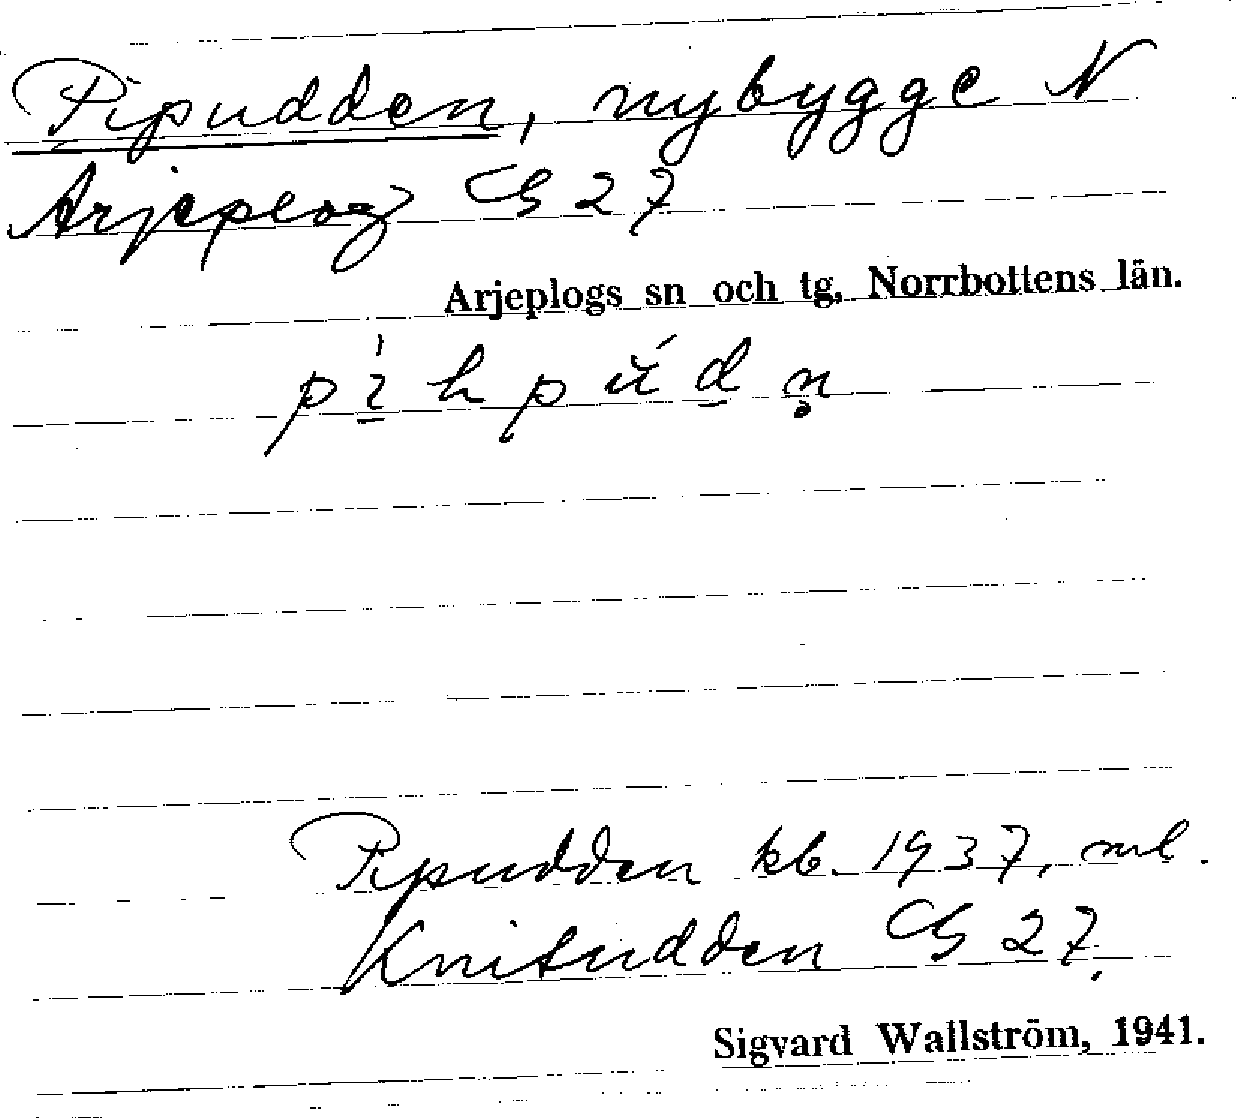 Pipudden, nybygge N
Arjeplog G 27
Arjeplogs sn och tg, Norrbottens län.
Pipudden kb. 1937, ml.
Knitudden G 27.
Sigvard Wallström, 1941.